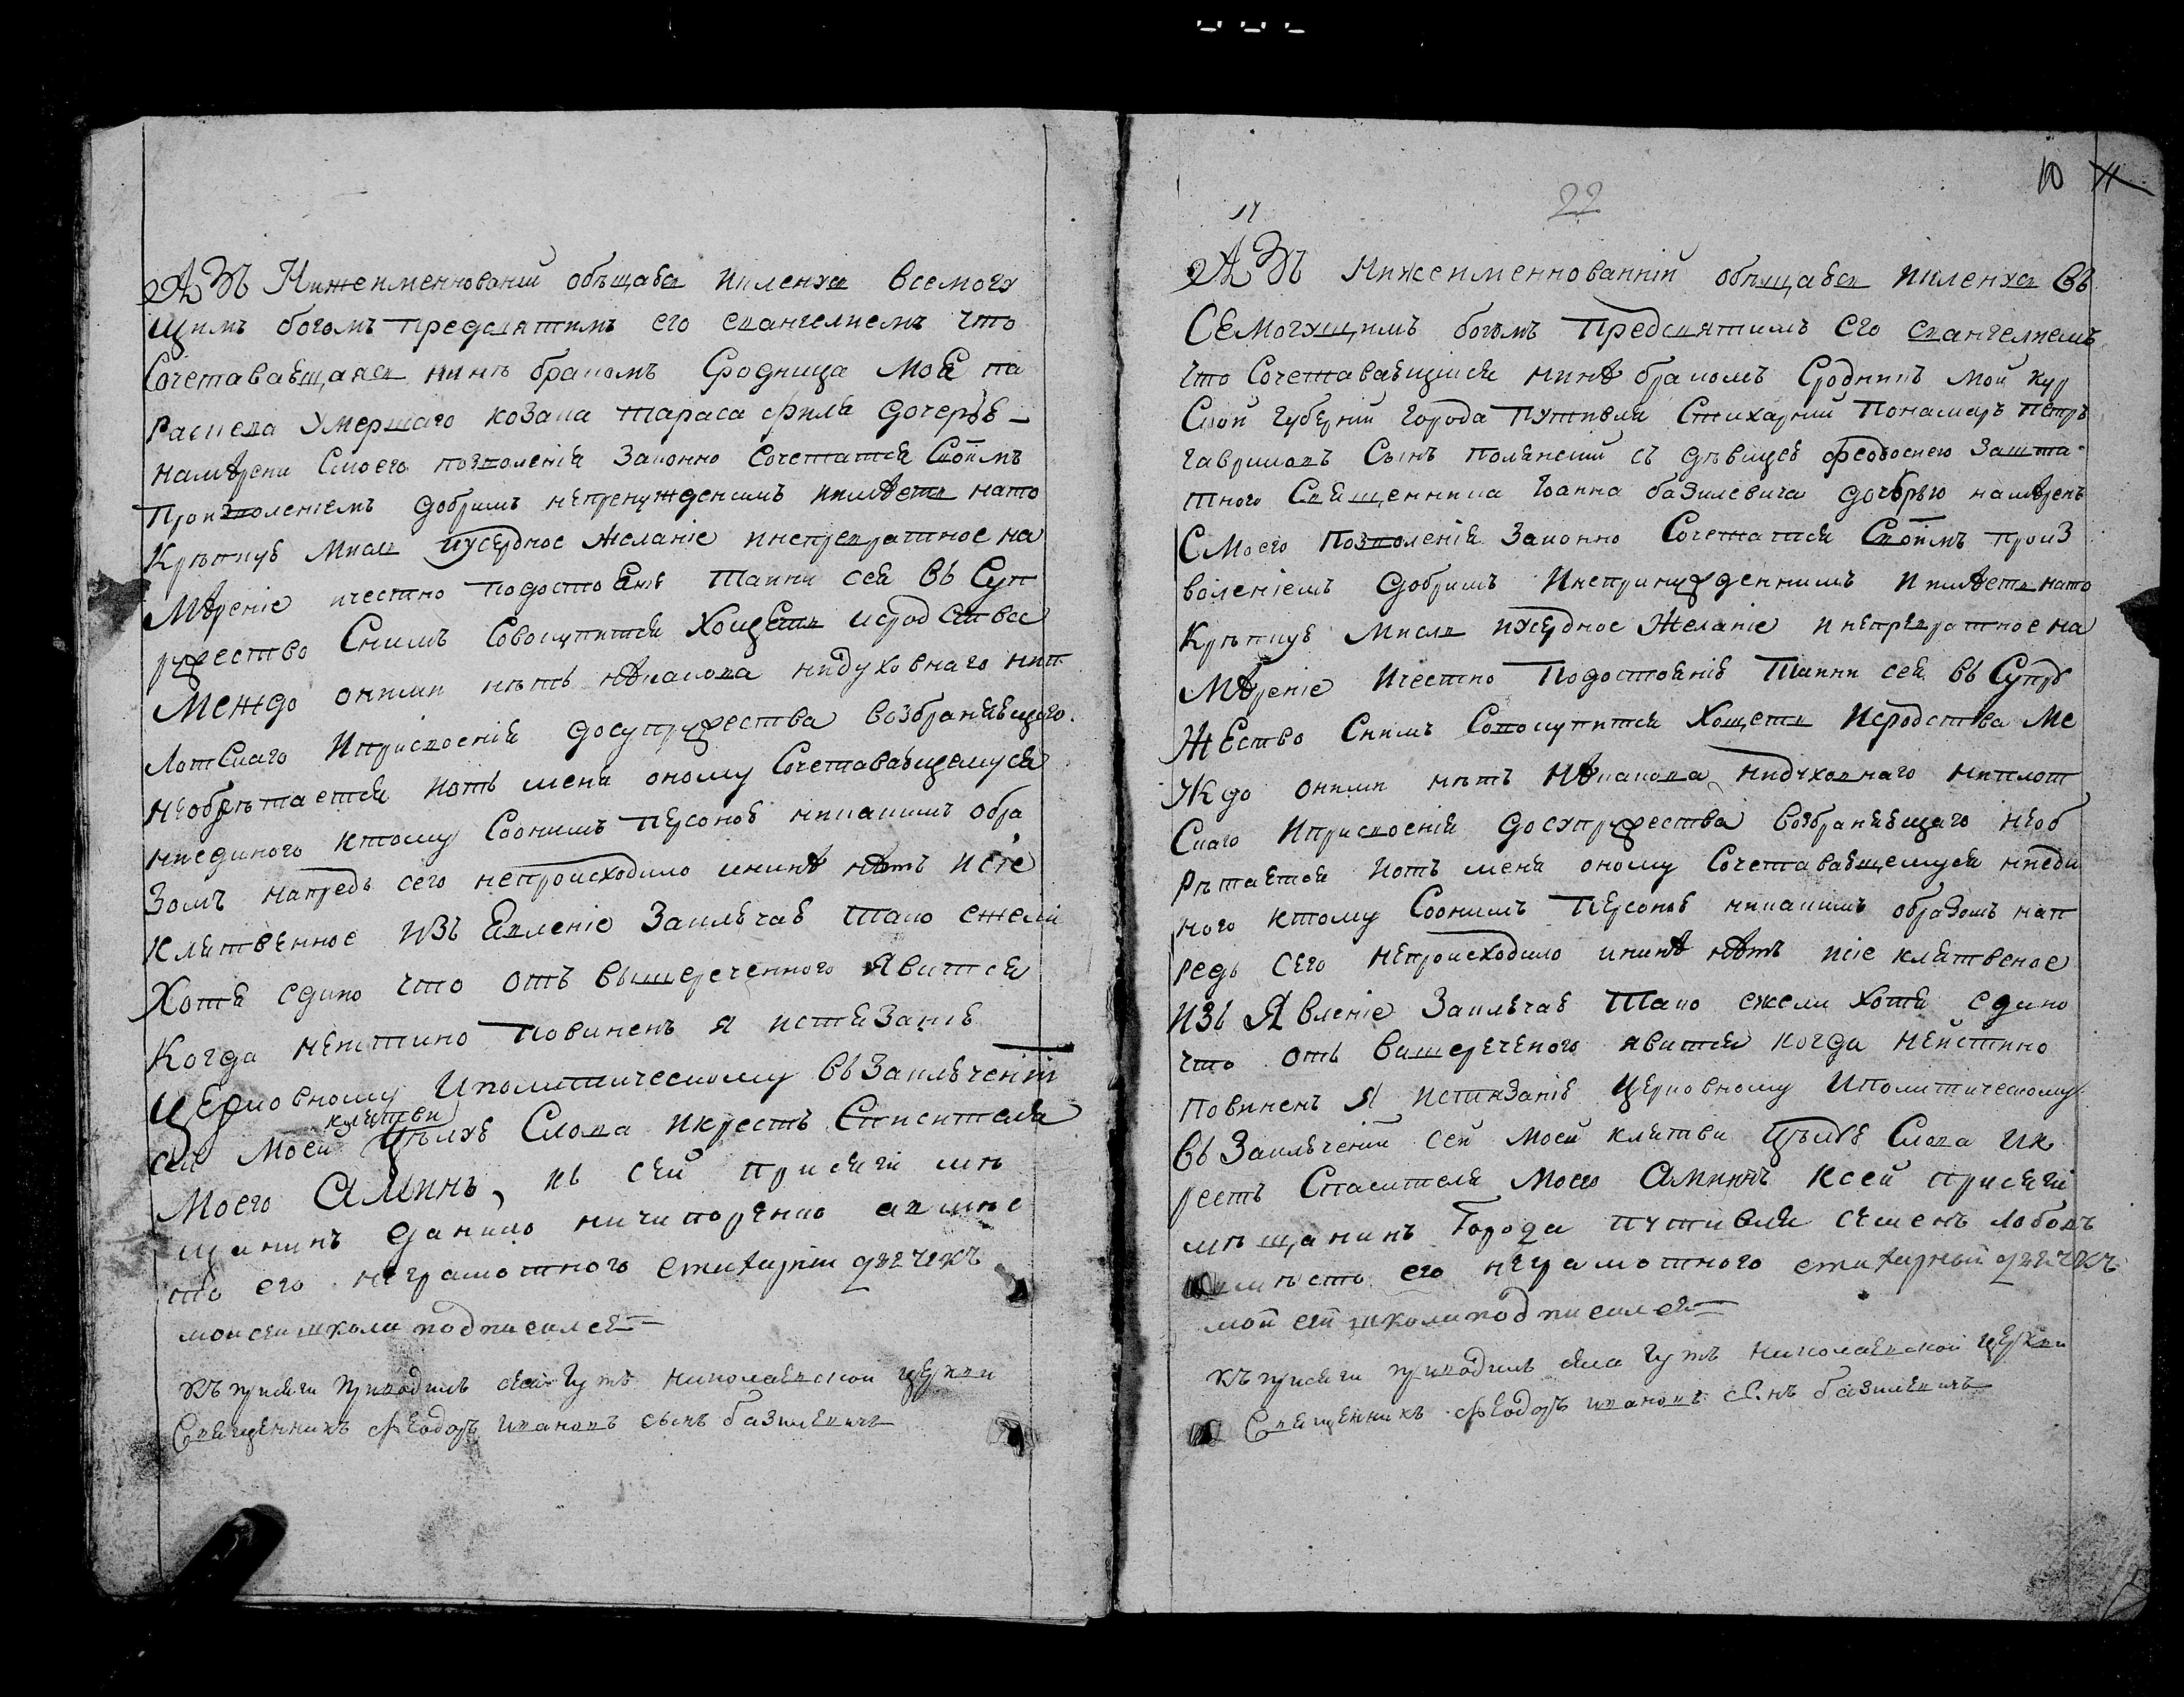 АЗЪ Нижеименнованній обѣщаюся иклянуся всемогу
щимъ богомъ предсвятимъ его евангелиемъ что
Сочетаваящаяся нинѣ бракомъ Сродница моя па
раскева умершаго козака тараса филя дочеръю
намѣрена Смоего позволенія законно Сочетатся Своимъ
Произволеніемъ добримъ непренужденнимъ иимѣетъ нато
Крѣпкую мисль иусердное желаніе инепревратное на
Мѣреніе ичестно подостоянію тайни сея въ Суп
ружество Снимъ Совокупится Хощетъ исродства
Междо оними нѣтъ нѣкакова нидуховнаго нип
лотскаго Иприсвоенія досупружества возбраняющаго
необрѣтается иотъ меня оному Сочетавающемуся
ниединого ктому Соонимъ Персоною никакимъ обра
Зомъ напредь сего непроисходило ининѣ нѣтъ исіе
клятвенное ИЗЪ Явленіе Заключаю Тако ежели
Хотя едино что отъ вышереченного Явится
Когда неистино Повиненъ я истязанію
Церковному Иполитическому въ Заключеніи
сей моей клятви Цѣлую Слова икрестъ Спасителя
Моего Аминь, къ сей присяги мѣ
щанинъ данило ничипоренко авмѣс
то его неграмотного стихарни дячекъ
моисеи школи подписался
къ присяги приводилъ села Гутъ николаевской церкви
Священникъ феодоръ ивановъ сынъ базилевичъ
17
22
10 11
АЗЪ Нижеименнованній обѣщаюся иклянуся Въ
Семогущимъ богомъ Предсвятимъ Его евангелиемъ
что Сочетавающійся нинѣ бракомъ Сродникъ мой кур
Ской губерній города Путивля Стихарний Понамаръ Петръ
гавриловъ Сынъ полянский съ дѣвицею феодосиею Зашта
тного Священника Іоанна базилевича дочерью намѣренъ
СМоего Позволенія Законно Сочетатся Своимъ произ
воленіемъ добримъ Инепринужденнимъ Иимѣетъ нато
Крѣпкую Мисль иусердное Желаніе инепревратное на
Мѣреніе Ичестно Подостоянію Тайни сея въ Супру
ЖЕство Снимъ Совокупится Хощетъ Исродства Ме
Ждо оними нѣтъ Нѣкакова нидуховнаго ниплот
Скаго Иприсвоенія досупружества возбраняющаго необ
рѣтается иотъ меня оному Сочетавающемуся ниеди
ного ктому Соонимъ Персоною никакимъ образомъ нап
редь Сего непроисходило ининѣ нѣтъ исіе клятвеное
ИЗЪ Явленіе Заключаю Тако ежели хотя едино
что отъ вишереченого явится когда неистино
Повиненъ Я истинзанію Церковному Иполитическому
Въ Заключеній сей моей клятви Цѣлую Слова ик
рестъ Спасителя моего Аминь Ксей присяги
мѣщанинъ Города путивля семенъ лободъ
авмѣсто его неграмотного стихарный дячекъ
моисей школи подписался
къ присяги приводилъ села Гутъ николаевской церкви
Священникъ феодоръ ивановъ сынъ базилевичъ